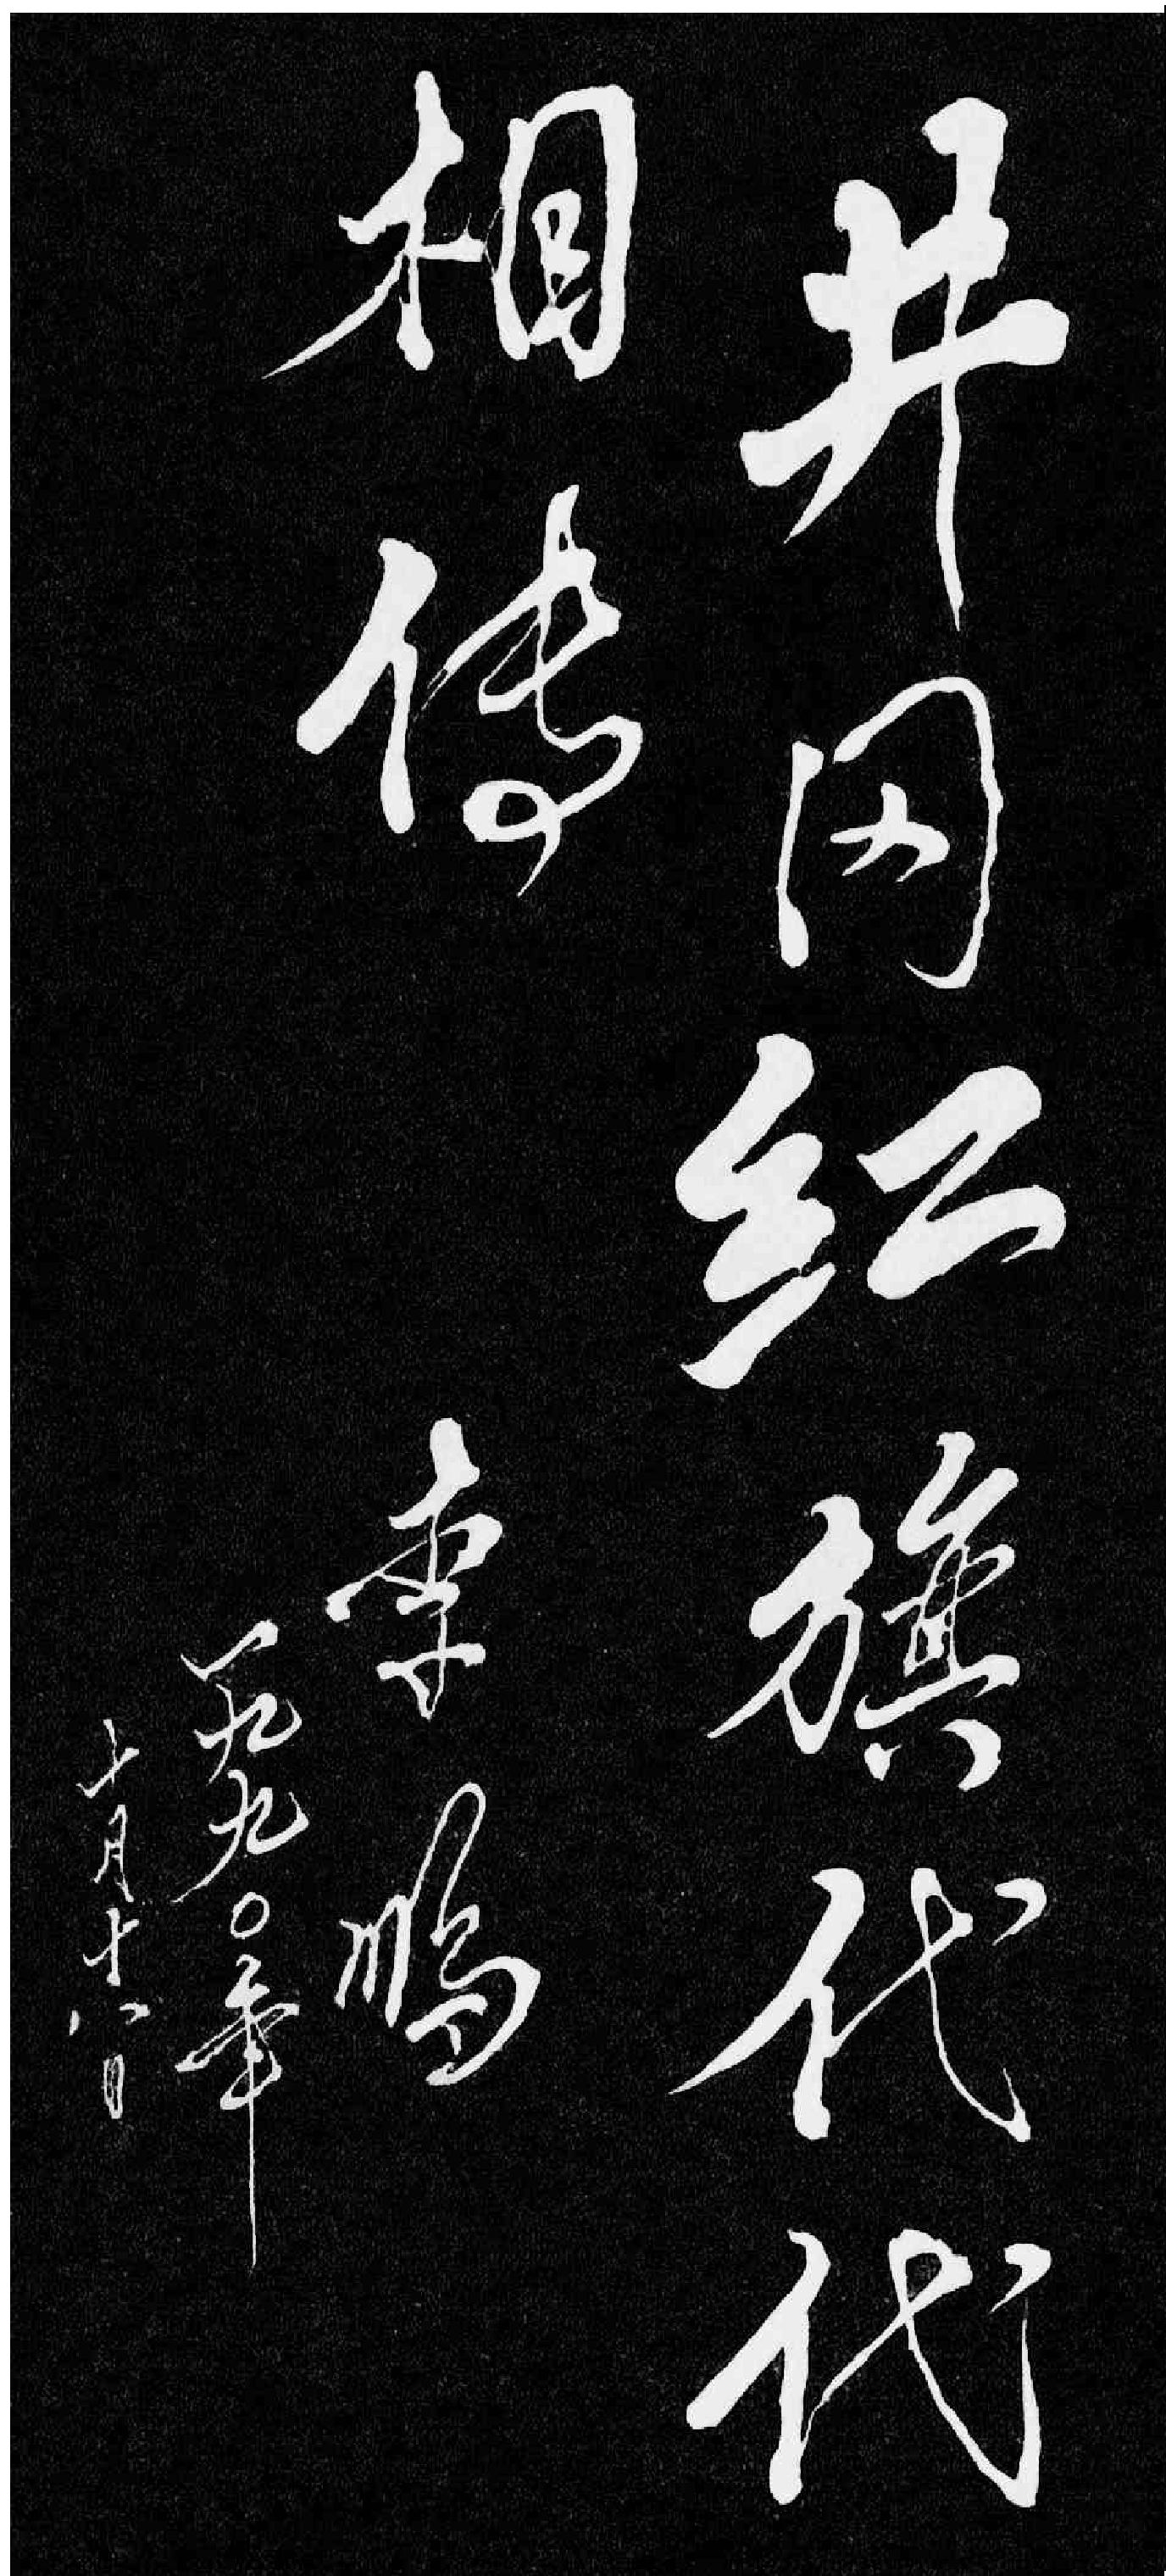 井冈红旗代代
相传
李鹏
一九九〇年
十月十八日